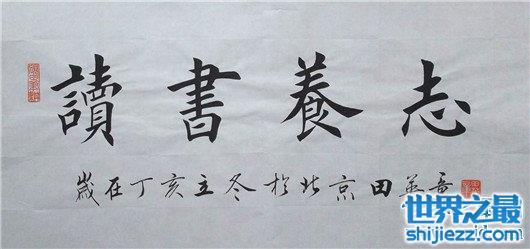 讀書養志
歲在丁亥立冬於北京田英章
世界之最